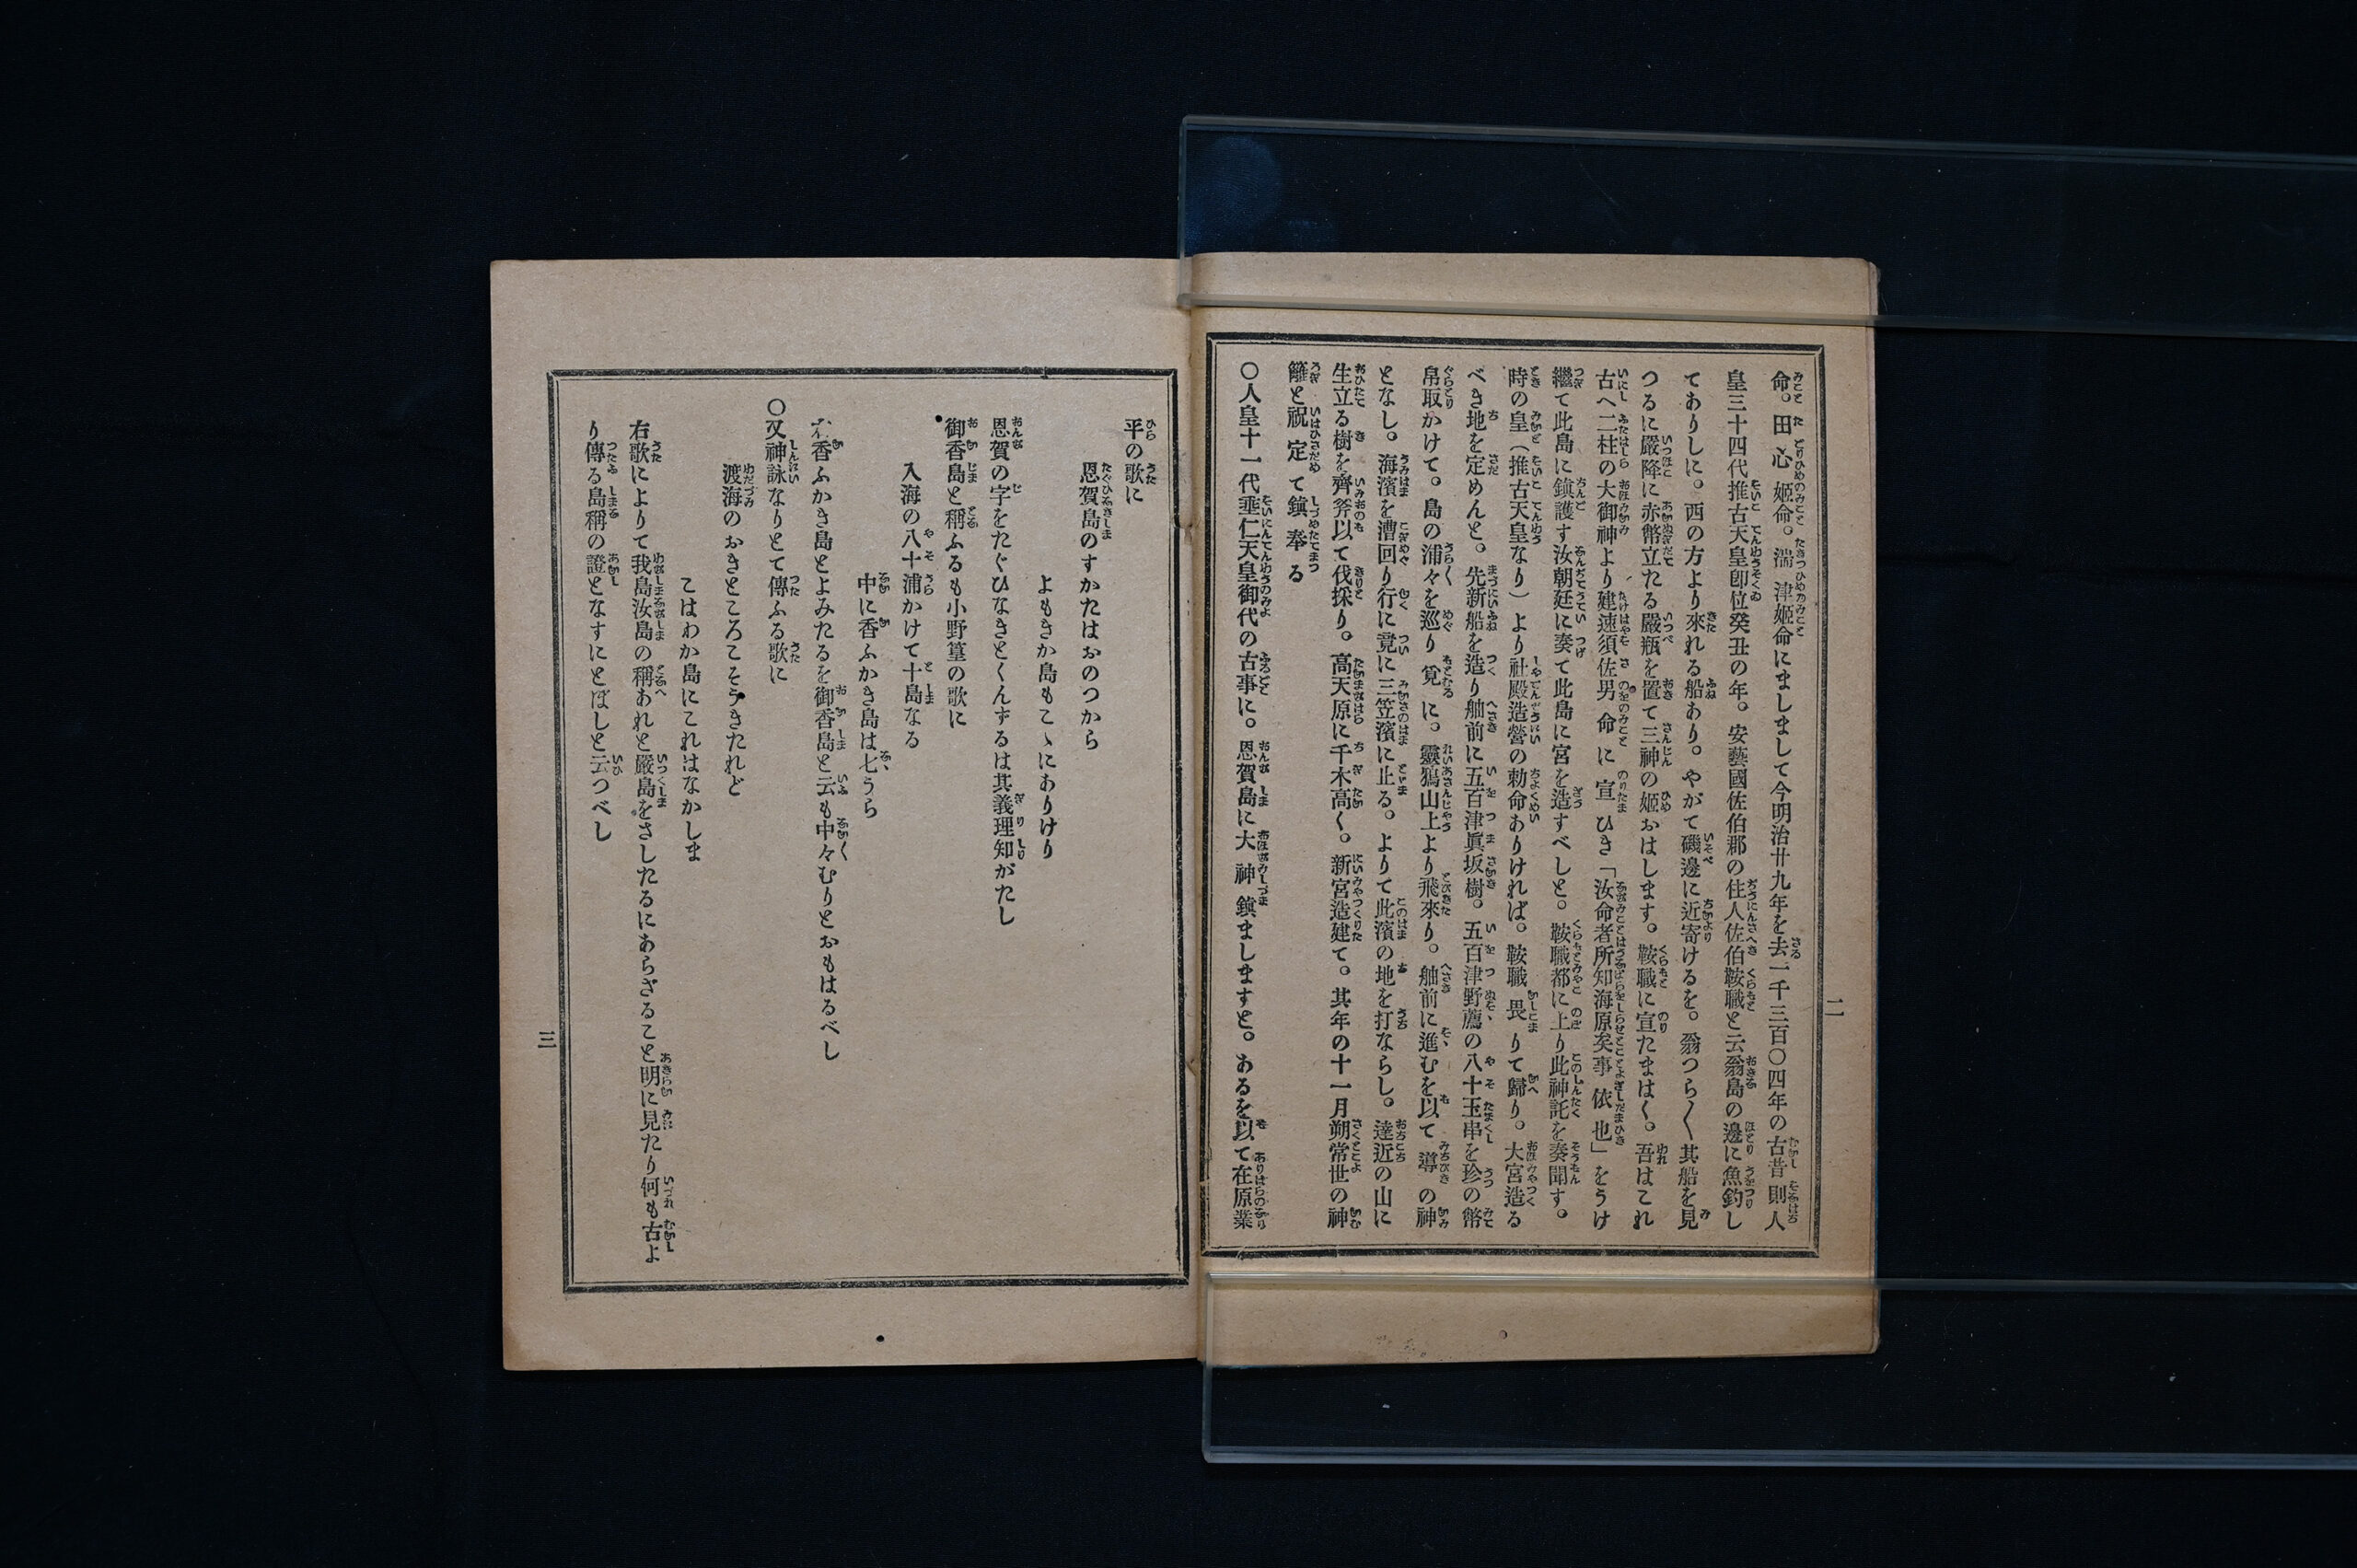 命。田心姫命。湍津姫命にましまして今明治廿九年を去一千三百〇四年の古昔則人
皇三十四代推古天皇卽位癸丑の年。安藝國佐伯郡の住人佐伯鞍職と云翁島の邊に魚釣し
てありしに。西の方より來れる船あり。やがて磯邊に近寄けるを。翁つら〱其船を見
つるに嚴降に赤幣立たる嚴瓶を置て三神の姫おはします。鞍職に宣たまはく。吾はこれ
古へ二柱の大御神より建速須佐男命に宣ひき「汝命者所知海原矣事依也」をうけ
繼て此島に鎭護す汝朝廷に奏て此島に宮を造すべしと。鞍職都に上り此神託を奏聞す。
時の皇（推古天皇なり）より社殿造營の勅命ありければ。鞍職畏りて歸り。大宮造る
べき地を定めんと。先新船を造り舳前に五百津眞坂樹。五百津野薦の八十玉串を珍の幣
帛取かけて。島の浦々を巡り覓に。靈鵶山上より飛來り。舳前に進むを以て導の神
となし。海濱を漕回り行に竟に三笠濱に止る。よりて此濱の地を打ならし。遠近の山に
生立る樹を齊斧以て伐採り。高天原に千木高く。新宮造建て。其年の十一月朔常世の神
籬と祝定て鎭奉る
〇人皇十一代埀仁天皇御代の古事に。恩賀島に大神鎭ましますと。あるを以て在原業
二
平の歌に
恩賀島のすかたはおのつから
よもきか島もこゝにありけり
恩賀の字をたぐひなきとくんずるは其義理知がたし
御香島と稱ふるも小野篁の歌に
入海の八十浦かけて十島なる
中に香ふかき島は七うら
香ふかき島とよみたるを御香島と云も中々むりとおもはるべし
〇又神詠なりとて傳ふる歌に
渡海のおきところこそうきたれど
こはわか島にこれはなかしま
右歌によりて我島汝島の稱あれと嚴島をさしたるにあらざること明に見たり何も古よ
り傳る島稱の證となすにとぼしと云つべし
三